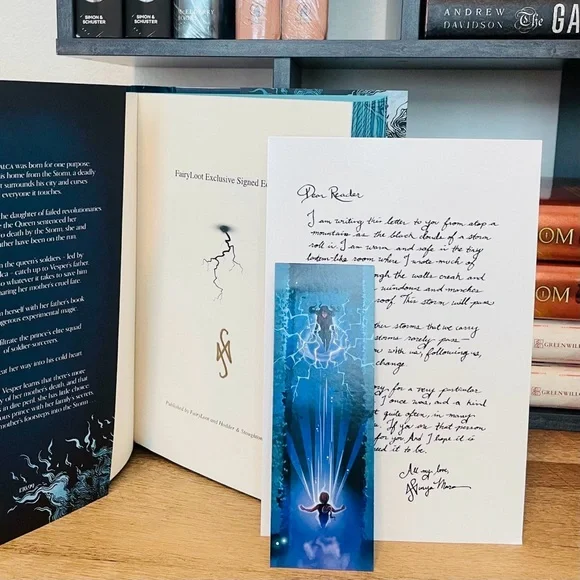 SIMON &
SCHUSTER
SIMON &
SCHUSTER
ANDREW
DAVIDSON The GA
ALCA was born for one purpose.
is home from the Storm, a deadly
t surrounds his city and curses
everyone it touches.
he daughter of failed revolutionaries
the Queen sentenced her
o death by the Storm, she and
ather have been on the run.
the queen's soldiers - led by
lca - catch up to Vesper's father.
whatever it takes to save him
haring her mother's cruel fate.
herself with her father's book
ngerous experimental magic.
filtrate the prince's elite squad
of soldier sorcerers.
her way into his cold heart
Vesper learns that there's more
of her mother's death, and that
in dire peril, she has little choice
ous prince with her family's secrets
mother's footsteps into the Storm.
FairyLoot Exclusive Signed Ed
Published by FairyLoot and Hodder & Stoughton
Dear Reader
I am writing this letter to you from atop a
mountain as the black clouds of a storm
roll in. I am warm and safe in the tiny
room where I wrote much of
gh the walls creak and
windows and marches
roof. This storm will pass
ther storms that we carry
storms rarely pass
with us, following us,
change.
for a very particular
I once was, and a kind
quite often, in many
If you are that person
for you. And I hope it is
need it to be.
All my love,
OM
OM
GREENWILL
GREENWILLO